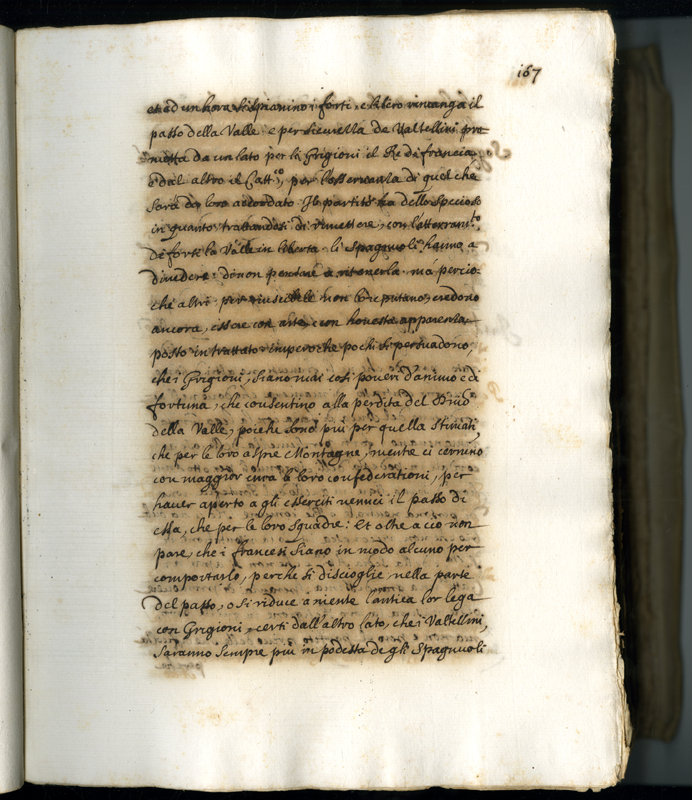 167
et ad un hora si spianino i forti, e libero rimanga il
passo della Valle: e per sicurezza de Valtellini pro
metta da un lato per li Grigioni il Re di francia
e dal altro il Catt.co, per l'osservanza di quel che
sarà da loro accordato. Il partito ha dello specioso
in quanto trattandosi di rimettere, con l'atterram.to
de forti la Valle in libertà li Spagnuoli hanno a
divedere di non pensare a ritenerla. mà percio:
che altri per riuscibile non lo reputano, credono
ancora, essere con arte, e con honesta apparenza,
posto in trattato: imperoche pochi si persuadono,
che i Grigioni, siano mai così poveri d'animo e di
fortuna, che consentino alla perdita del
della Valle, poiche sono più per quella stimati,
che per le loro aspre Montagne, mentre ci
con maggior cura le loro confederationi, per
haver aperto a gli esserciti nemici il passo di
essa, che per le loro squadre: Et oltre a ciò non
pare, che i francesi siano in modo alcuno per
comportarlo, perche si discioglie nella parte
del passo, o si riduce a niente l'antica lor lega
con Grigioni, certi dall'altro lato, che i Vallellini,
saranno sempre più in podestà degli Spagnuoli